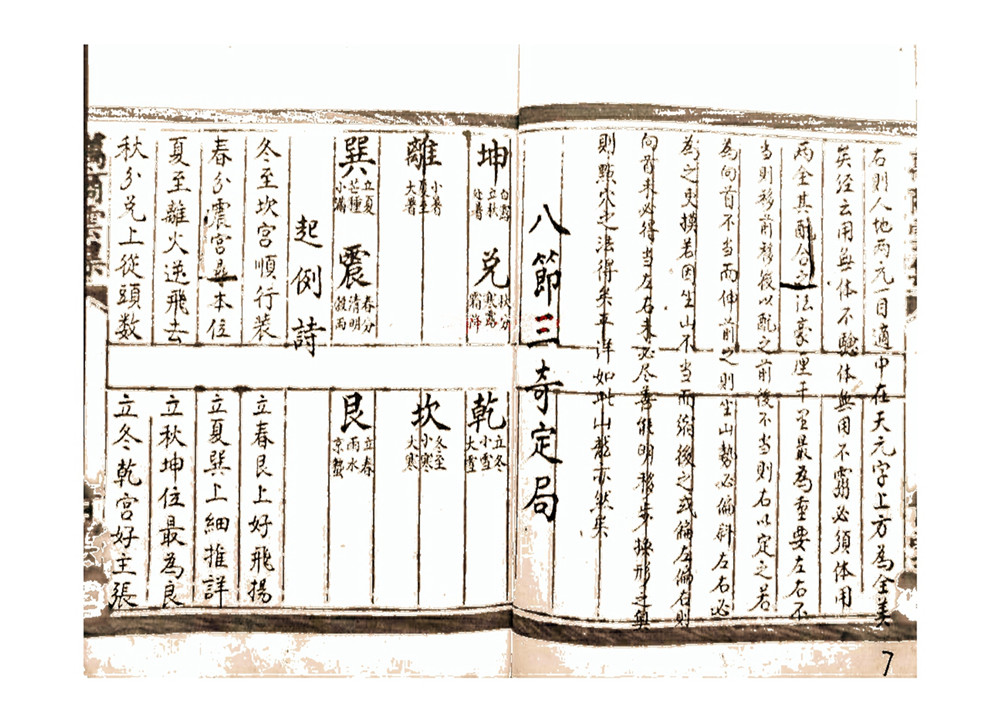 右則人地兩元一目適中在天元字上方為全美
矣経云用無体不騐体無用不霛必須体用
兩全其配合之法豪厘千里最為重要左右不
當則移前移後以配之前後不當則右以定之若
為向首不當而伸前之則坐山勢必偏斜左右必
為之更摸若因坐山不當而縮後之或偏左偏右則
向首未必得当左右未必尽善能明移步換形之奧
則點穴之法得矣平洋如此山龍亦然矣
八節三奇定局
坤 白露 立秋 處暑 兌 秋分 寒露 霜降 乾 立冬 小雪 大雪
離 小暑 夏至 大暑 坎 冬至 小寒 大寒
巽 立夏 芒種 小滿 震 春分 清明 穀雨 艮 立春 雨水 京蟄
起例詩
冬至坎宮順行裝 立春艮上好飛揚
春分震宮本位 立夏巽上細推詳
夏至離火逆飛去 立秋坤位最為良
秋分兌上從頭數 立冬乾宮好主張
7